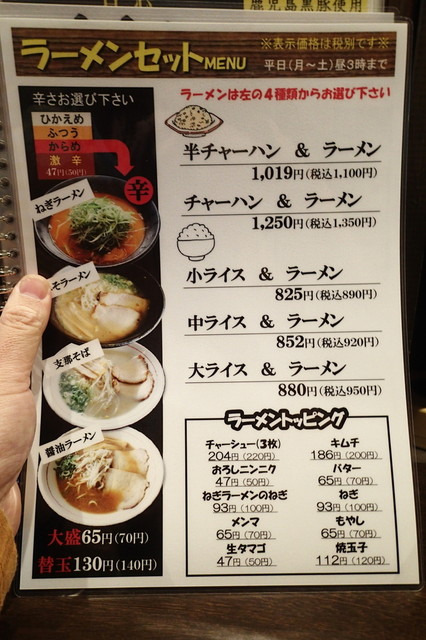 鹿児島黒豚使用
ラーメンセットMENU
※表示価格は税別です※
平日(月～土)昼3時まで
辛さお選び下さい
ひかえめ
ふつう
からめ
激辛
47円(50円)
辛
ねぎラーメン
そラーメン
支那そば
醤油ラーメン
大盛65円(70円)
替玉130円(140円)
ラーメンは左の4種類からお選び下さい
半チャーハン & ラーメン
1,019円(税込1,100円)
チャーハン & ラーメン
1,250円(税込1,350円)
小ライス & ラーメン
825円(税込890円)
中ライス & ラーメン
852円(税込920円)
大ライス & ラーメン
880円(税込950円)
ラーメントッピング
チャーシュー(3枚)
204円(220円)
おろしニンニク
47円(50円)
ねぎラーメンのねぎ
93円(100円)
メンマ
65円(70円)
生タマゴ
47円(50円)
キムチ
186円(200円)
バター
65円(70円)
ねぎ
93円(100円)
もやし
65円(70円)
焼玉子
112円(120円)